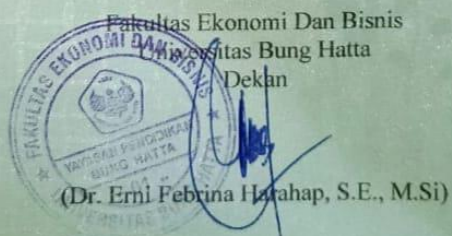 Fakultas Ekonomi Dan Bisnis
Universitas Bung Hatta
Dekan
FAKULTAS EKONOMI DAN BISNIS
YAYASAN PENDIDIKAN
BUNG HATTA
UNIVERSITAS BUNG HATTA
(Dr. Erni Febrina Harahap, S.E., M.Si)